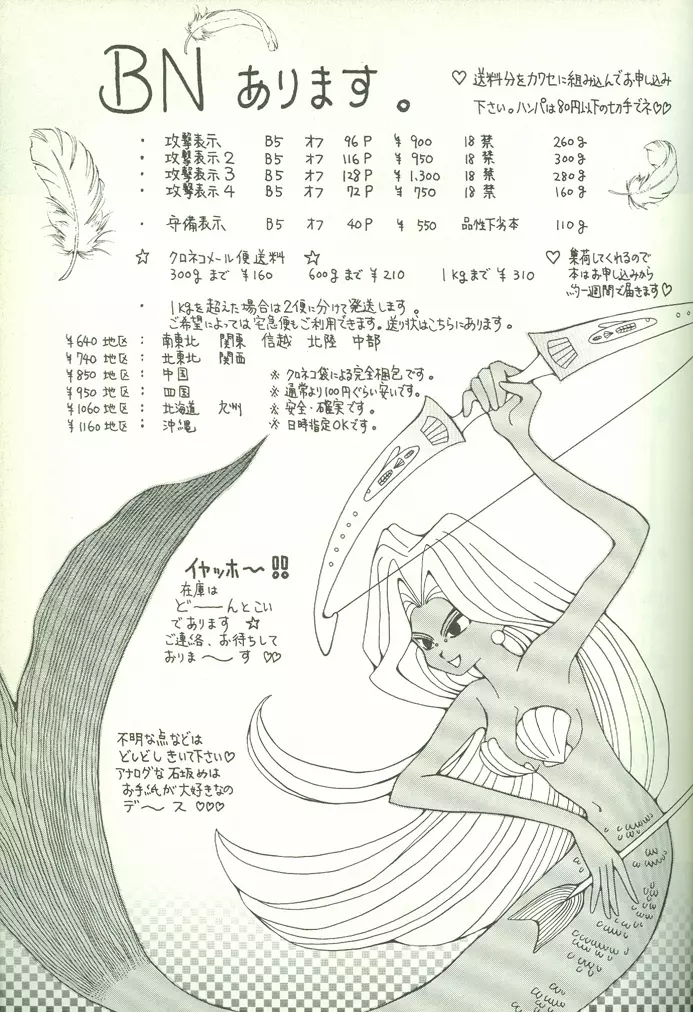 BN あります。
♡ 送料分をカワセに組み込んでお申し込み
下さい。ハンパは80円以下のセカ手でネ♡♡
・ 攻撃表示 B5 オフ 96P ¥900 18禁 260g
・ 攻撃表示2 B5 オフ 116P ¥950 18禁 300g
・ 攻撃表示3 B5 オフ 128P ¥1.300 18禁 280g
・ 攻撃表示4 B5 オフ 72P ¥750 18禁 160g
・ 守備表示 B5 オフ 40P ¥550 品性下劣本 110g
☆ クロネコメール便送料 ☆
300gまで ¥160 600gまで ¥210 1kgまで ¥310
♡ 集荷してくれるので
本はお申し込みから
約一週間で届きます♡
・ 1kgを超えた場合は2便に分けて発送します。
ご希望によっては宅急便もご利用できます。送り状はこちらにあります。
¥640 地区: 南東北 関東 信越 北陸 中部
¥740 地区: 北東北 関西
¥850 地区: 中国 ※クロネコ袋による完全梱包です。
¥950 地区: 四国 ※通常より100円ぐらい安いです。
¥1060 地区: 北海道 九州 ※安全・確実です。
¥1160 地区: 沖縄 ※日時指定OKです。
イヤッホ〜!!
在庫は
ど――んとこい
であります ☆
ご連絡、お待ちして
おりま〜す ♡♡
不明な点などは
どしどしきいて下さい♡
アナログな石坂めは
お手紙が大好きなの
デ〜ス ♡♡♡